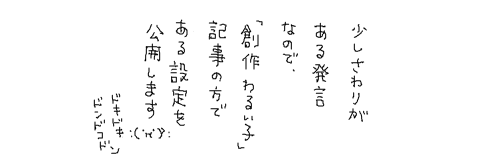 少しさわりが
ある発言
なので、
「創作わるい子」
記事の方で
ある設定を
公開します
ドキドキ:(´'ω'`):
ドンドコドン